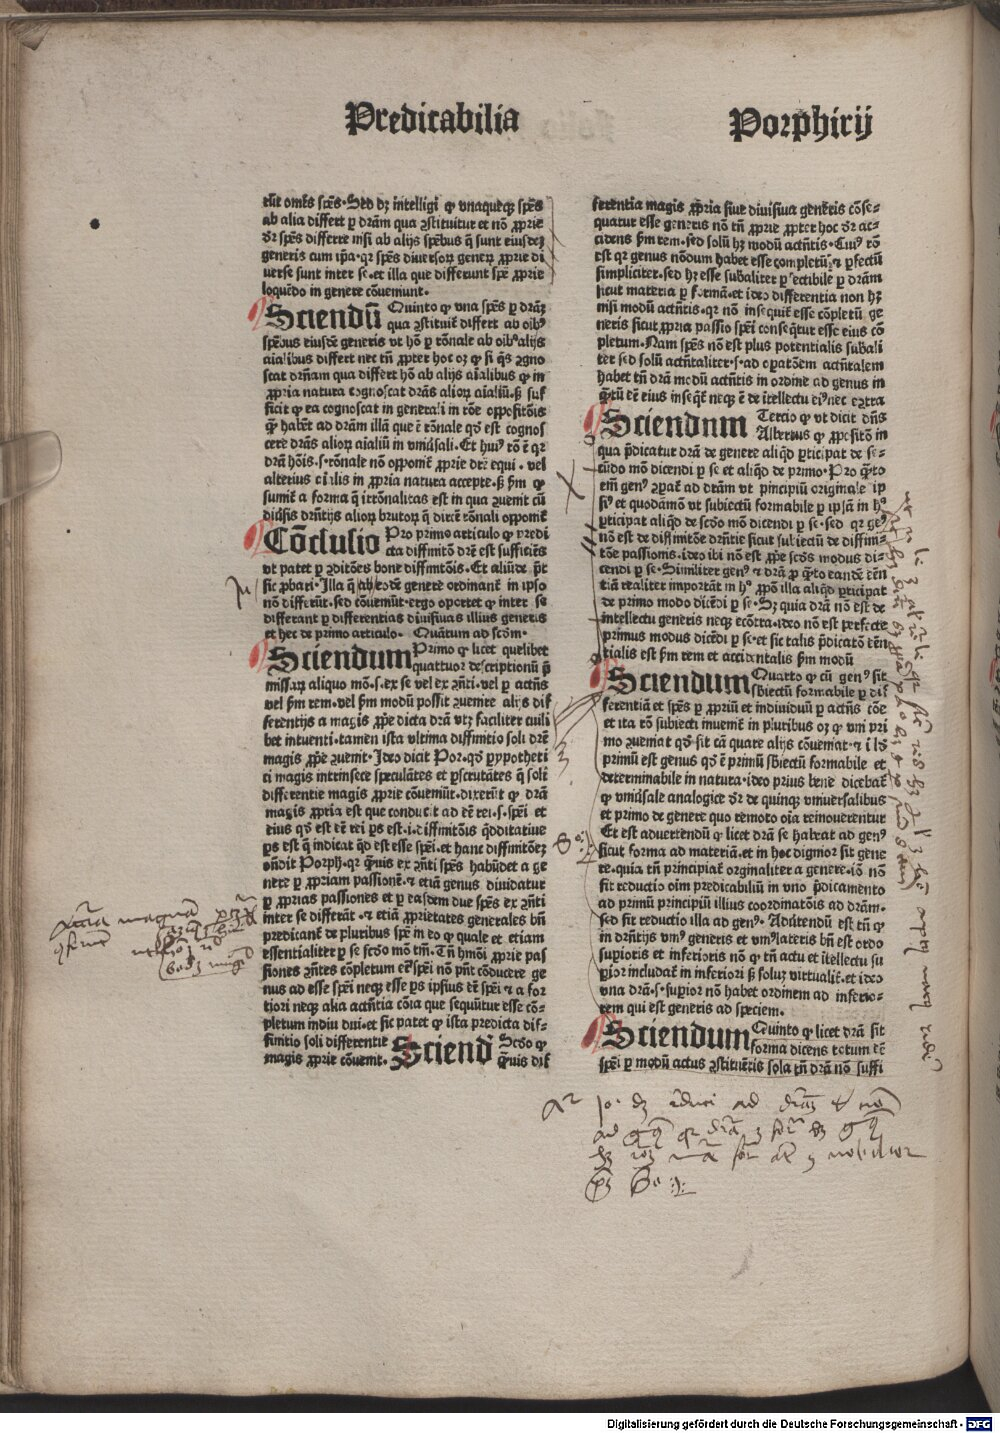 Predicabilia Porphirij
tūt omēs spēs. Sed dꝫ intelligi ꝙ vnaqueqꝫ spēs
ab alia differt ꝑ drām qua ꝯstituitur et nō ꝓprie
dr̄ spēs differre nisi ab alijs spēbus q̄ sunt eiusdeꝫ
generis cum ip̄a. qꝛ spēs diuersoꝝ geneꝝ ꝓprie di
uerse sunt inter se. et illa que differunt spē ꝓprie
loquēdo in genere cōueniunt.
Sciendū Quinto ꝙ vna spēs ꝑ drāꝫ
qua ꝯstituit̄ differt ab oībꝰ
spēbus eiusdē generis vt hō ꝑ rōnale ab oībꝰ alijs
aīalibus differt nec tn̄ ꝓpter hoc oꝫ ꝙ si q̄s ꝯgno
scat drn̄am qua differt hō ab alijs aīalibus ꝙ in
ꝓpria natura cognoscat drās alioꝝ aīaliū. sꝫ suf
ficit ꝙ ea cognoscat in generali in rōe oppositōis
q̄ꝫ habēt ad drām illā que ē rōnale qd̄ est cognos
cere drās alioꝝ aīaliū in vniuersali. Et huiꝰ rō ē qꝛ
drā hōis. s. rōnale nō opponit̄ ꝓprie dr̄e equi. vel
alterius aīalis in ꝓpria natura accepte. sꝫ ẜm ꝙ
sumit̄ a forma q̄ irrōnalitas est in qua ꝯuenit cū
diuersis drn̄tijs alioꝝ brutoꝝ q̄ directe rōnali opponit̄
Cōclusio Pro primo articulo ꝙ predi
cta diffinitō dr̄e est sufficiēs
vt patet ꝑ ꝯditōes bone diffinitōis. Et aliūde p̄t
sic ꝓbari. Illa q̄ ab eodē genere ordinant̄ in ipso
nō differūt. sed cōueniūt. ergo oportet ꝙ inter se
differant ꝑ differentias diuisiuas illius generis
et hec de primo articulo. Quātum ad scd̄m.
Sciendum Primo ꝙ licet quelibet
quattuor descriptionū p̄
missaꝝ aliquo mō. s. ex se vel ex ꝯn̄ti. vel ꝑ actn̄s
vel ẜm rem. vel ẜm modū possit ꝯuenire alijs dif
ferentijs a magis ꝓpe dicta drā vtꝫ faciliter cuili
bet intuenti. tamen ista vltima diffinitio soli dr̄e
magis ꝓpe ꝯuenit. Ideo dicit Por. qd̄ ꝑypotheti
ci magis intrinsece speculātes et ꝑscrutātes q̄ solē
differentie magis ꝓprie cōueniūt. dixerūt ꝙ drā
magis ꝓpria est que conducit ad eē rei. s. spēi et
eius qd̄ est eē rei ꝑs est. i. diffinitōis q̄dditatiue
ꝑs est q̄ indicat qd̄ est esse spēi. et hanc diffinitōeꝫ
on̄dit Porph. qꝛ q̄uis ex ꝯn̄ti spēs habūdet a ge
nere ꝑ ꝓpriam passionē. ⁊ etiā genus diuidatur
ꝑ ꝓprias passiones et ꝑ easdem due spēs ex ꝯn̄ti
inter se differāt. ⁊ etiā ꝓprietates generales bn̄
predicant̄ de pluribus spē in eo ꝙ quale et etiam
essentialiter ꝑ se scd̄o mō tm̄. Tn̄ hmōi ꝓprie pas
siones ꝯn̄tes cōpletum eē spēi nō pn̄t cōducere ge
nus ad esse spēi neqꝫ esse ꝑs ipsius eē spēi ⁊ a for
tiori neqꝫ alia actn̄tia cōia que sequūtur esse cō-
pletum indiuidui. et sic patet ꝙ ista predicta dif-
finitio soli differentie
magis ꝓprie cōuenit. Sciend Scd̄o ꝙ
q̄uis dif
ferentia magis ꝓpria siue diuisiua genēris cōse-
quatur esse generis nō tn̄ ꝓprie ꝓpter hoc dr̄ ac-
cidens ẜm rem. sed solū hꝫ modū actn̄tis. Cuiꝰ rō
est qꝛ genus nōdum habet esse completū ⁊ ꝑfectū
simpliciter. sed hꝫ esse sub̄aliter ꝑfectibile ꝑ drām
sicut materia ꝑ formā. et ideo differentia non hꝫ
nisi modū actn̄tis. qꝛ nō insequit̄ esse cōpletū ge
neris sicut ꝓpria passio spēi conseq̄tur esse eius cō
pletum. Nam spēs nō est plus potentialis sub̄ali
ter sed solū actn̄taliter. s. ad oꝑatōem actn̄talem
habet tn̄ drā modū actn̄tis in ordine ad genus in
q̄tū eē eius inseqt̄ neqꝫ ē de ītellectu eiꝰ nec extra
Sciendum Tercio ꝙ vt dicit dn̄s
Albertus ꝙ ꝓpositō in
qua p̄dicatur drā de genere aliqd̄ ꝑticipat de se-
cūdo mō dicendi ꝑ se et aliqd̄ de primo. Pro q̄to
em̄ genꝰ ꝯꝑat̄ ad drām vt principiū originale ip
siꝰ et quodāmō vt subiectū formabile ꝑ ip̄sā in hꝰ
ꝑticipat aliqd̄ de scd̄o mō dicendi ꝑ se. sed qꝛ genꝰ
nō est de diffinitōe drn̄tie sicut subiectū de diffini-
tōe passionis. ideo ibi nō est ꝓpe scd̄s modus di-
cendi ꝑ se. Similiter genꝰ ⁊ drā ꝓ q̄to eandē eēn
tiā realiter important in hꝰ ꝓpō illa aliqd̄ ꝑticipat
de primo modo dicēdi ꝑ se. Sꝫ quia drā nō est de
intellectu generis neqꝫ ecōtra. ideo nō est perfecte
primus modus dicēdi ꝑ se. et sic talis p̄dicatō eēn
tialis est ẜm rem et accidentalis ẜm modū
Sciendum Quarto ꝙ cū genꝰ sit
sbiectū formabile ꝑ dif
ferentiā et spēs ꝑ ꝓpriū et indiuiduū ꝑ actn̄s cōe
et ita rō subiecti inuenit̄ in pluribus oꝫ ꝙ vni pri
mo ꝯueniat qd̄ sit cā quare alijs cōueniat. ⁊ ī hꝰ
primū est genus qd̄ ē primū sbiectū formabile et
determinabile in natura. ideo prius bene dicebat̄
ꝙ vniuersale analogice dr̄ de quinqꝫ vniuersalibus
et primo de genere quo remoto oīa remouerentur
Et est aduertendū ꝙ licet drā se habeat ad genꝰ
sicut forma ad materiā. et in hoc dignior sit gene
re. quia tn̄ principiat̄ orginaliter a genere. iō nō
fit reductio oīm predicabiliū in vno p̄dicamento
ad primū principiū illius coordinatōis ad drām.
sed fit reductio illa ad genꝰ. Aduertendū est tn̄ ꝙ
in drn̄tijs vniꝰ generis et vniꝰ lateris bn̄ est ordo
suꝑioris et inferioris nō ꝙ tn̄ actu et ītellectu su
ꝑior includat̄ in inferiori sꝫ soluꝫ virtualit̄. et ideo
vna drā. s. suꝑior nō habet ordinem ad inferio-
rem qui est generis ad speciem.
Sciendum Quinto ꝙ licet drā sit
forma dicens totum eē
spēi ꝑ modū actus ꝯstituētis sola tn̄ drā nō suffi
Digitalisierung gefördert durch die Deutsche Forschungsgemeinschaft - DFG